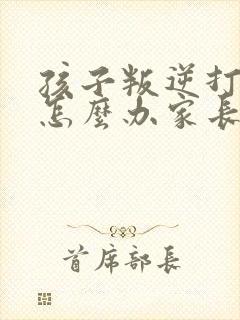 孩子叛逆打
怎麼办家長
首席部長